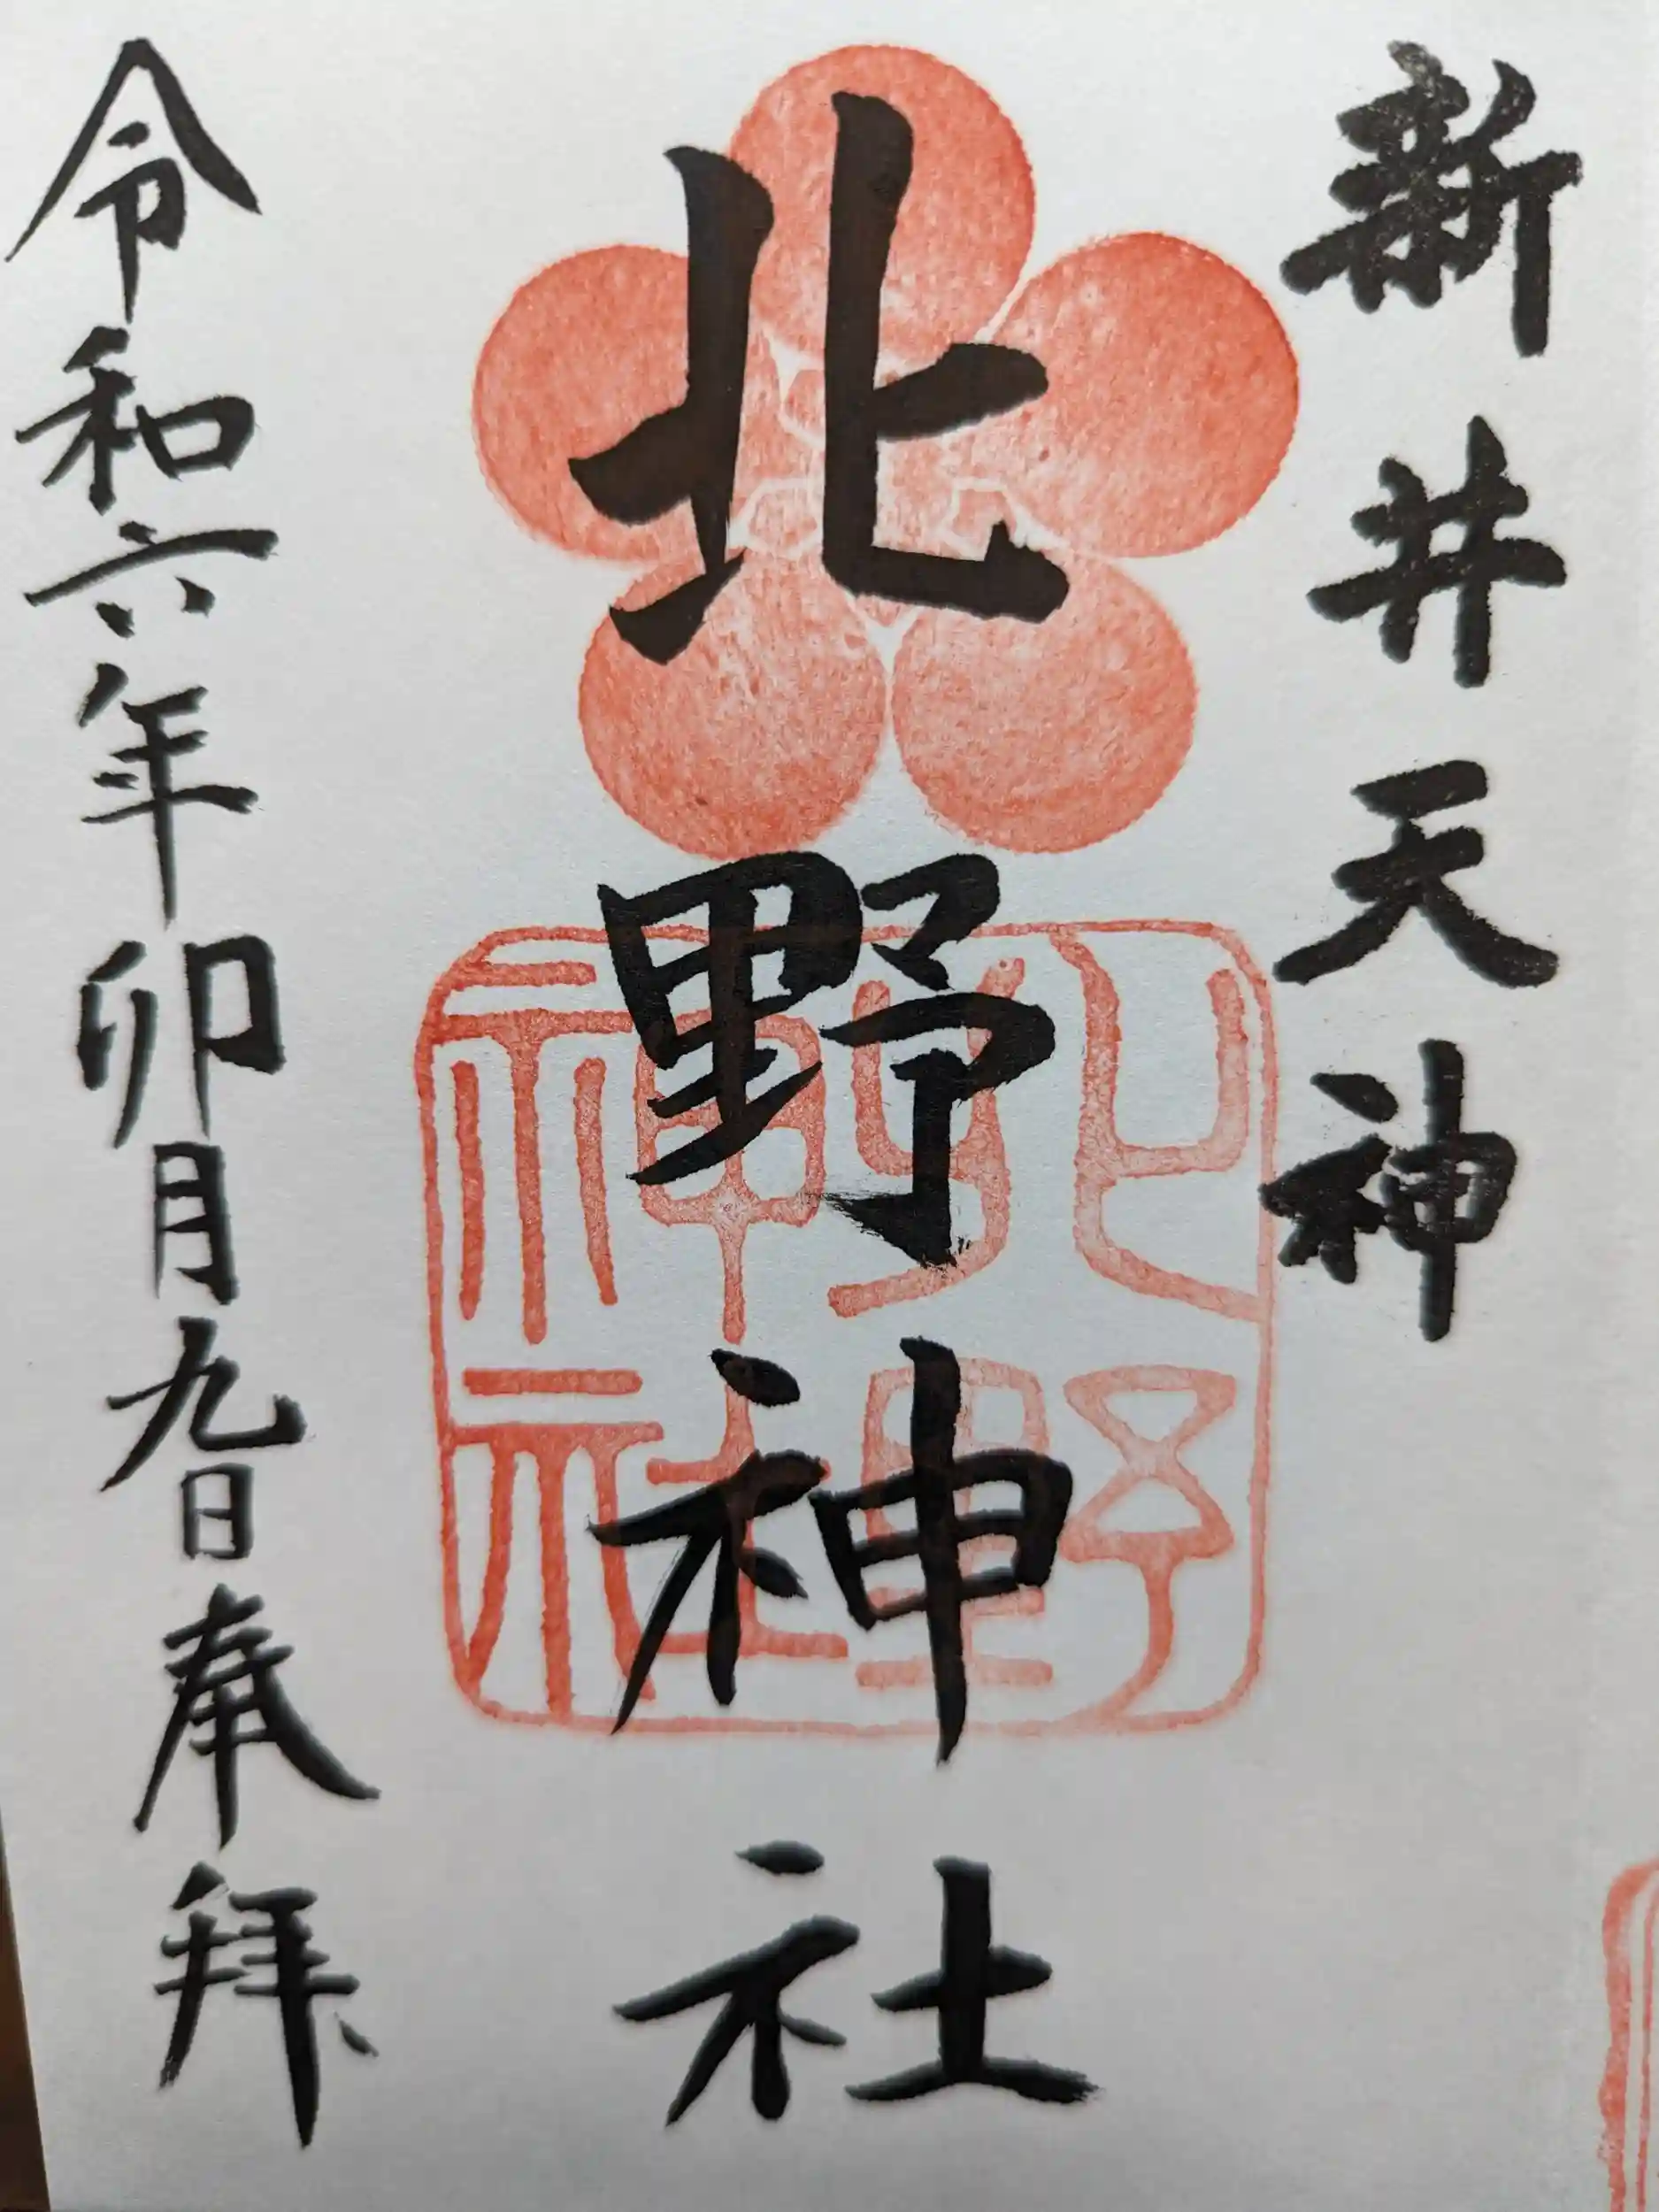 新井天神
北野神社
北野神社
令和六年卯月九日奉拝